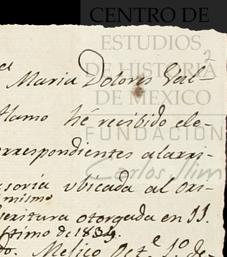 CENTRO DE
ESTUDIOS
DE HISTORIA
DE MEXICO
FUNDACIÓN
Carlos Slim
Maria Dolores Gal
Alamo hé recibido ele-
rrespondientes a la rri-
soria ubicada al Ori-
mismo
critura otorgada en 11
ptimo de 1839
Mejico Oct.e 1.o de-